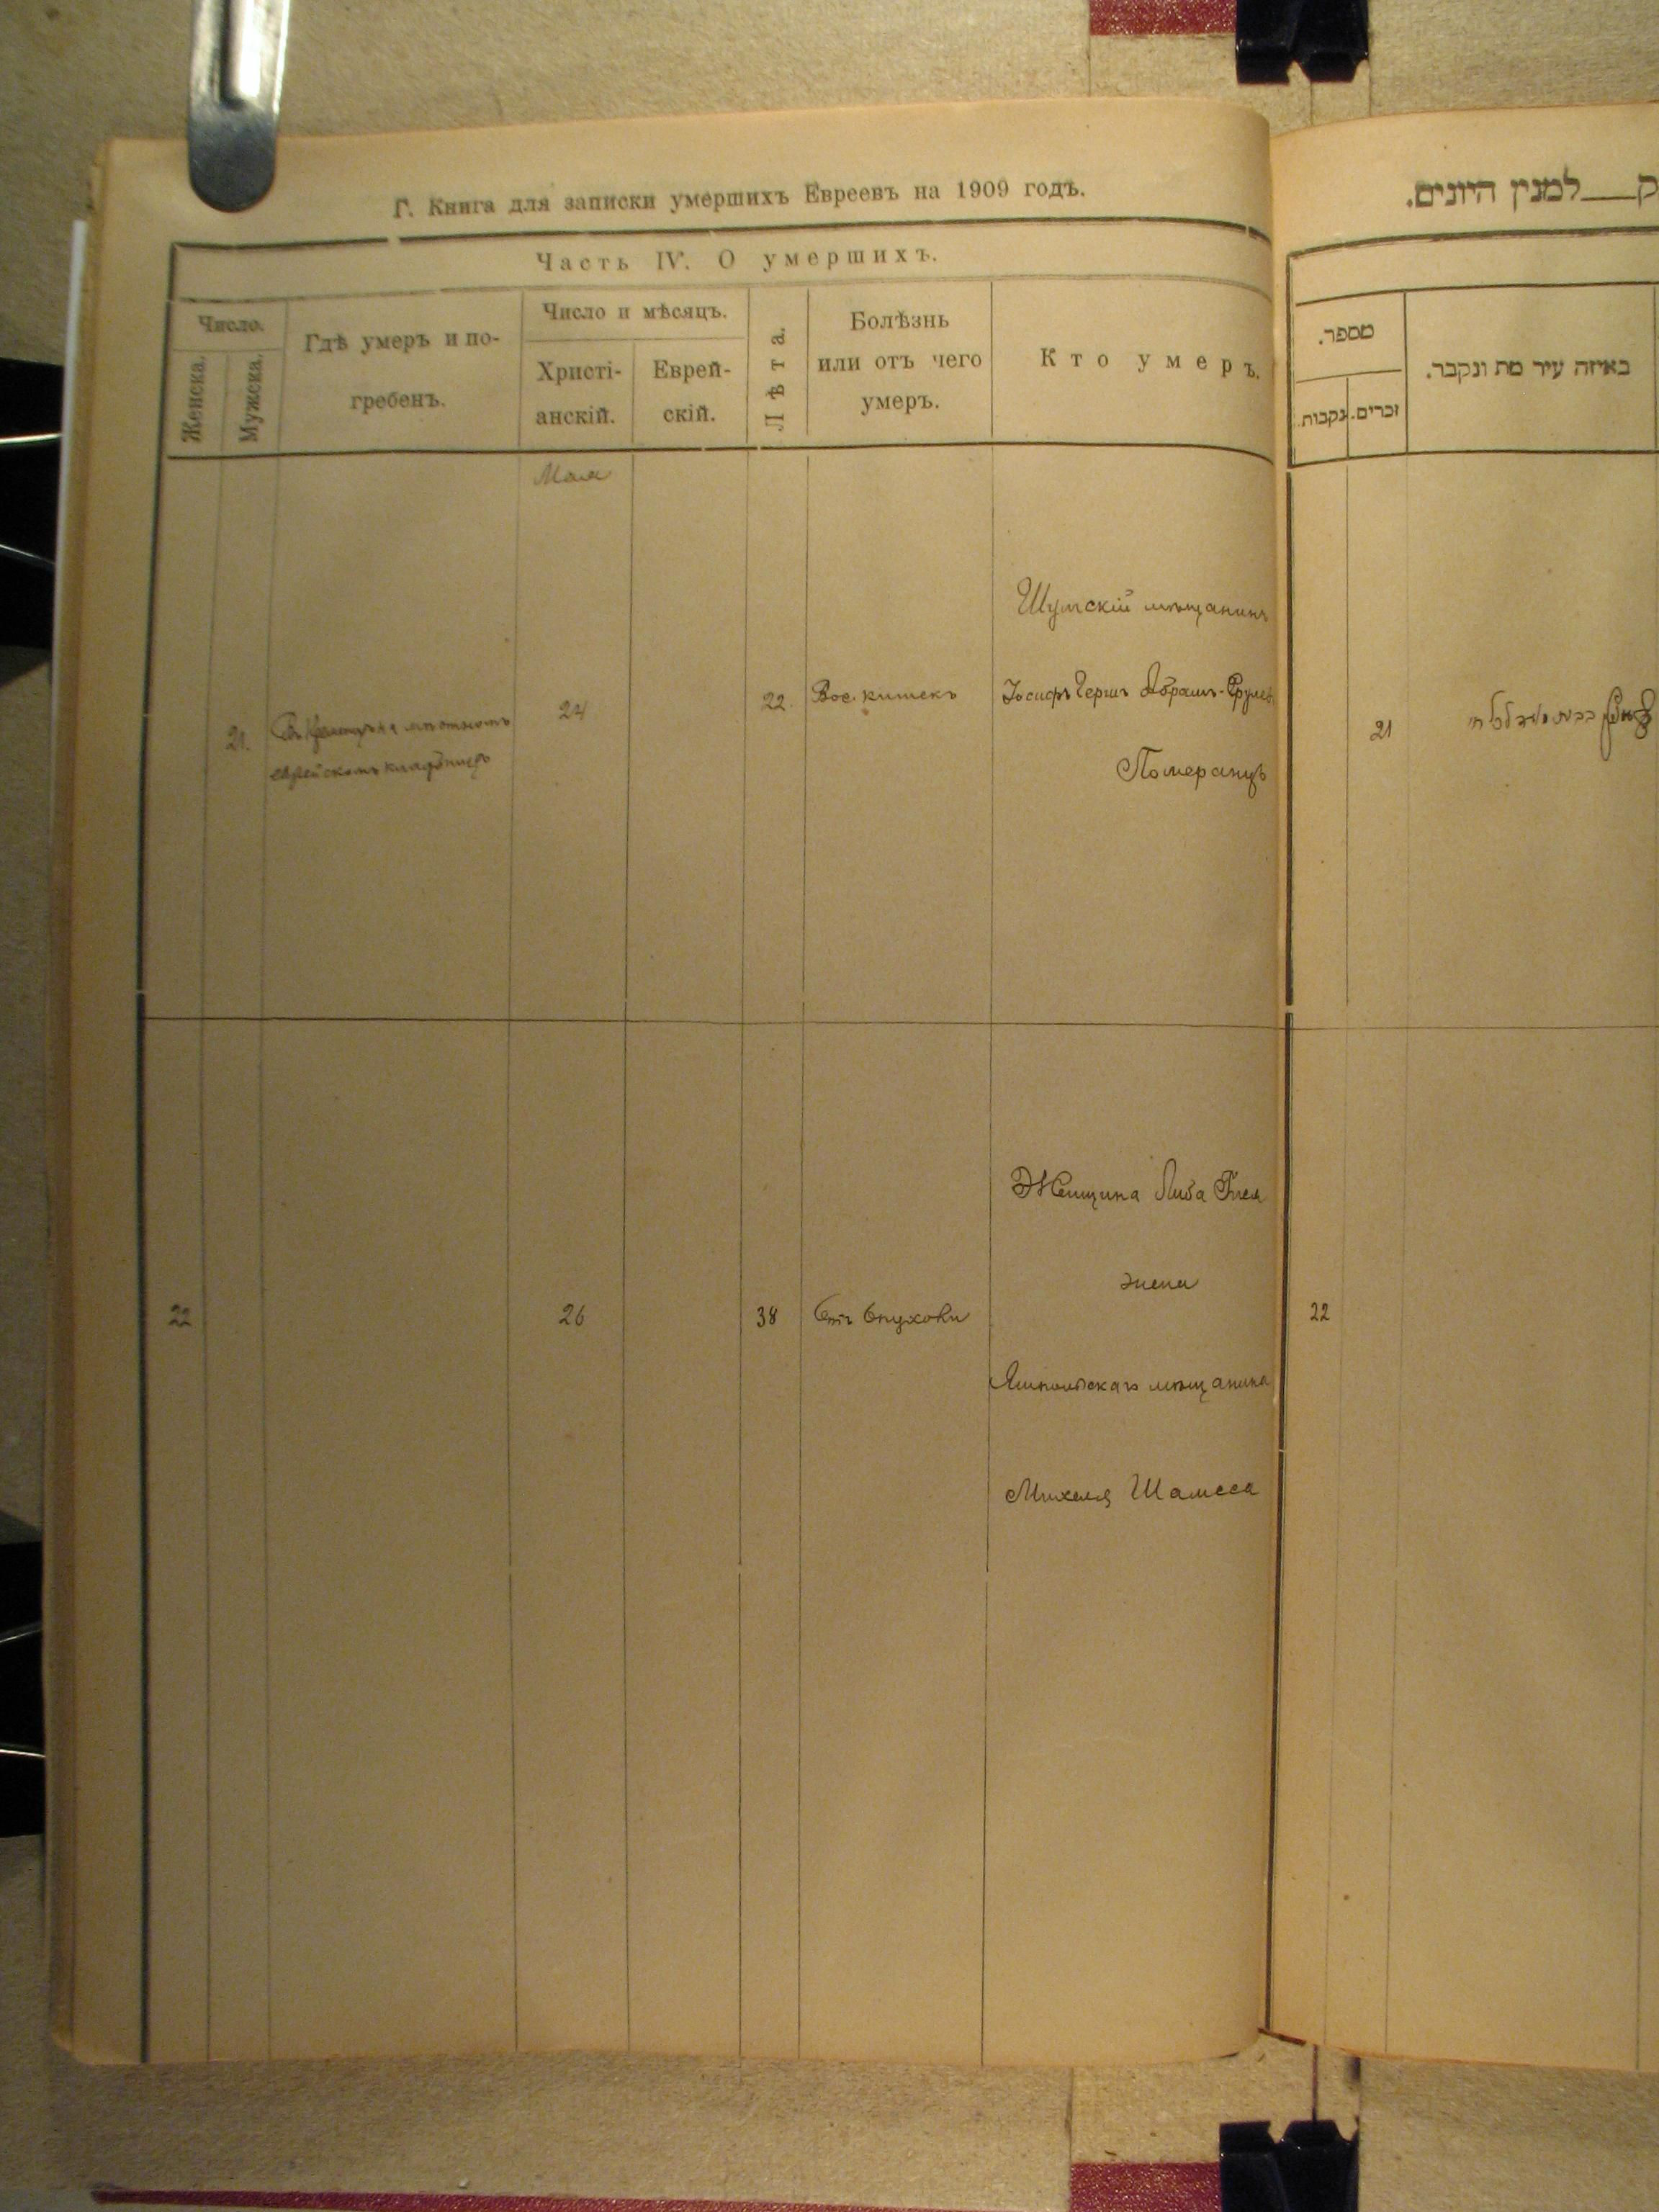 Г. Книга для записки умершихъ Евреевъ на 1909 годъ.
Часть IV. О умершихъ.
Число.
Женска.
Мужска.
Гдѣ умеръ и по-
гребенъ.
Число и мѣсяцъ.
Христі-
анскій.
Еврей-
скій.
Лѣта.
Болѣзнь
или отъ чего
умеръ.
Кто умеръ.
Мая
21.
Въ Кременцѣ на мѣстномъ
еврейскомъ кладбищѣ
24
22.
Вос. кишекъ
Шумскій мѣщанинъ
Іосифъ Гершъ Абрамъ-Сруле
Померанцъ
22
26
38
Отъ Опухоли
Женщина Либа
жена
Ямпольскаго мѣщанина
Михеля Шамеса
ק למנין היונים.
מספר.
נקבות.
זכרים.
באיזה עיר מת ונקבר.
21
22